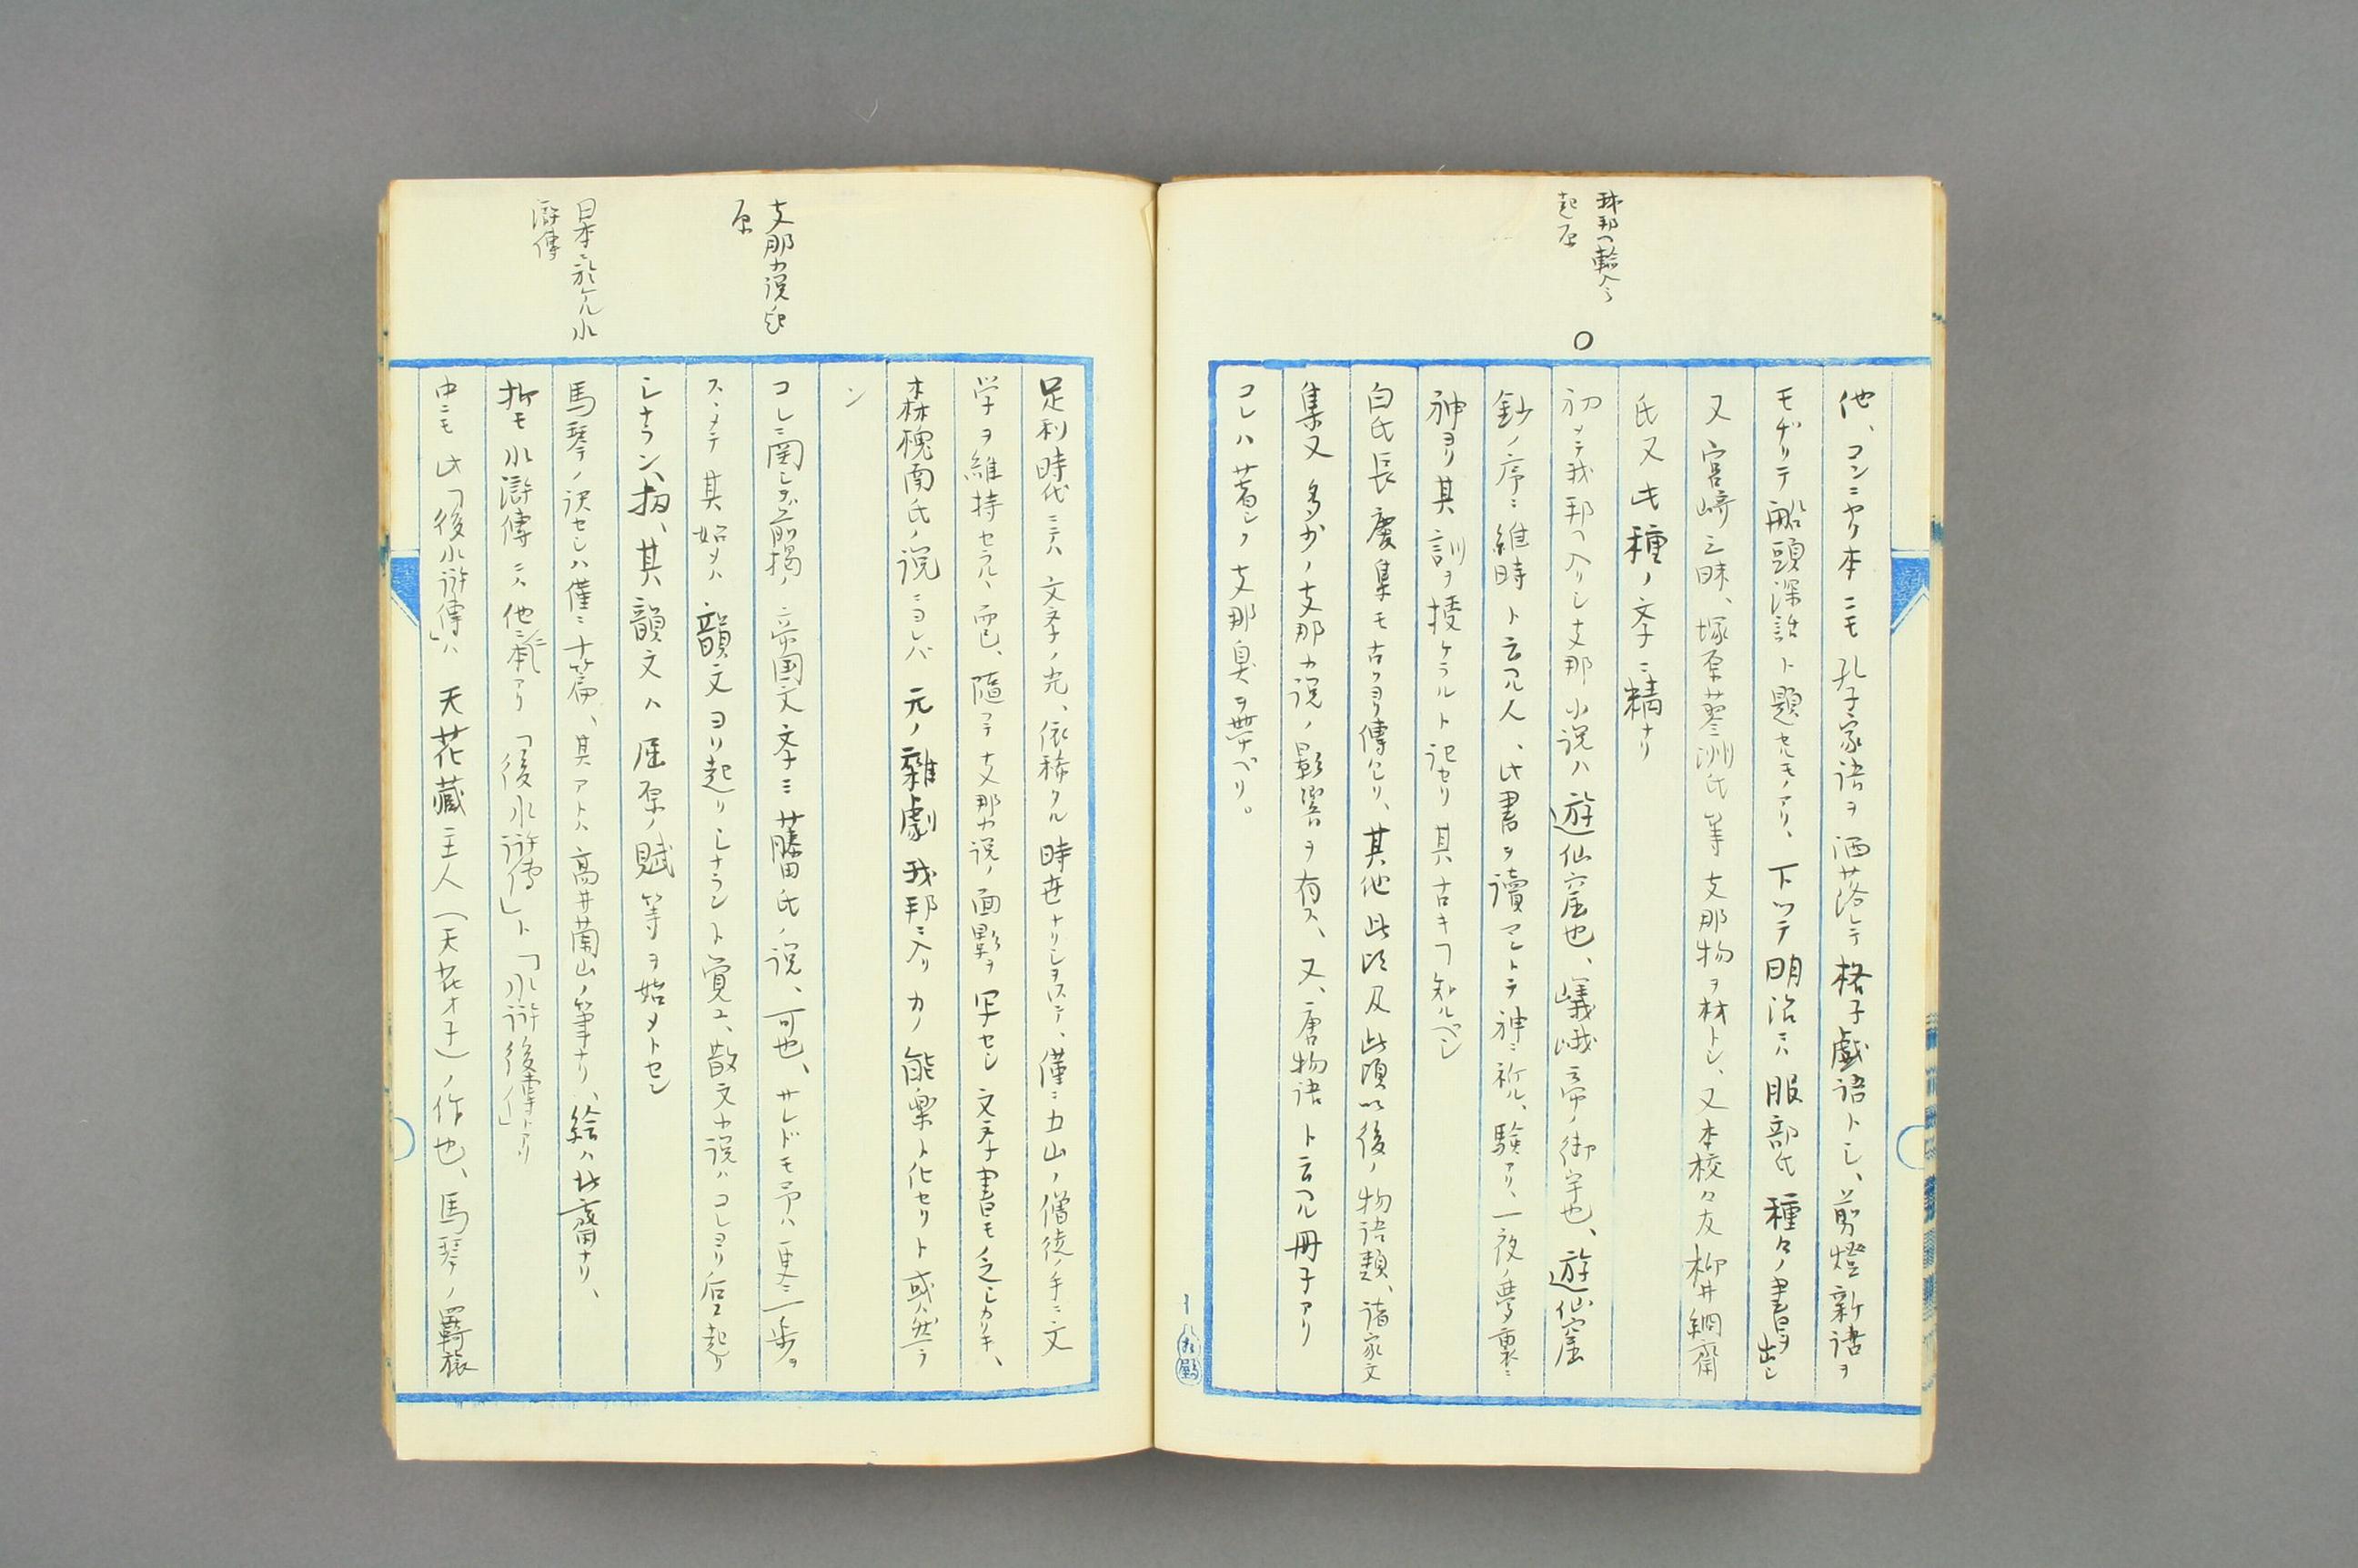 我邦ヘ輸入ノ
起原
他、コンニヤク本ニモ孔子家語ヲ洒落テ格子戯語トシ、剪燈新話ヲ
モヂリテ船頭深話ト題セルモノアリ、下ツテ明治ニハ服部氏種々ノ書ヲ出シ
又宮崎三昧、塚原蓼洲氏等支那物ヲ材トシ、又本校々友柳井絅齋
氏又此種ノ文学ニ精ナリ
初メテ我邦ヘ入リシ支那小説ハ遊仙窟也、嵯峨帝ノ御宇也、遊仙窟
鈔ノ序ニ維時ト云フ人、此書ヲ讀マントテ神ニ祈ル、験アリ、一夜ノ夢裏ニ
神ヨリ其訓ヲ授ケラルト記セリ其古キヿ知ルベシ
白氏長慶集モ古クヨリ傳ハレリ、其他此頃及此頃以後ノ物語類、諸家文
集又多少ノ支那小説ノ影響ヲ有ス、又、唐物語ト云フ冊子アリ
コレハ著シク支那臭ヲ帯ベリ。
支那小説起
原
日本ニ於ケル水
滸傳
足利時代ニテハ文学ノ光、依稀タル時世ナリシヲ以テ、僅ニ五山ノ僧徒ノ手ニ文
学ヲ維持セラル、而已、随テ支那小説ノ面影ヲ写セシ文学書モ乏シカリキ、
森槐南氏ノ説ニヨレバ元ノ雜劇我邦ニ入リカノ能楽ト化セリト或ハ然ラ
ン
コレニ関シテハ前掲ノ帝国文学ニ藤田氏ノ説、可也、サレドモ予ハ更ニ一歩ヲ
スヽメテ其始メハ韻文ヨリ起リシナラント覚ユ、散文小説ハコレヨリ后ニ起リ
シナラン、扨、其韻文ハ屈原ノ賦等ヲ始メトセン
馬琴ノ訳セシハ僅ニ十篇、其アトハ高井蘭山ノ筆ナリ、絵ハ北齋ナリ、
抑モ水滸傳ニハ他ニ二本アリ「後水滸傳」ト「水滸後傳」トアリ
中ニモ此「後水滸傳」ハ天花藏主人（天花才子）ノ作也、馬琴ノ羇旅